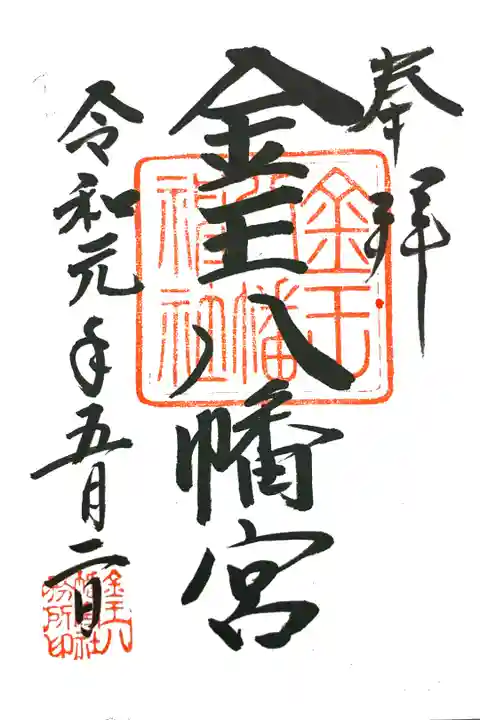 奉拝
金王八幡宮
令和元年五月二日
金王
八幡
神社
金王八
幡神社
務所印